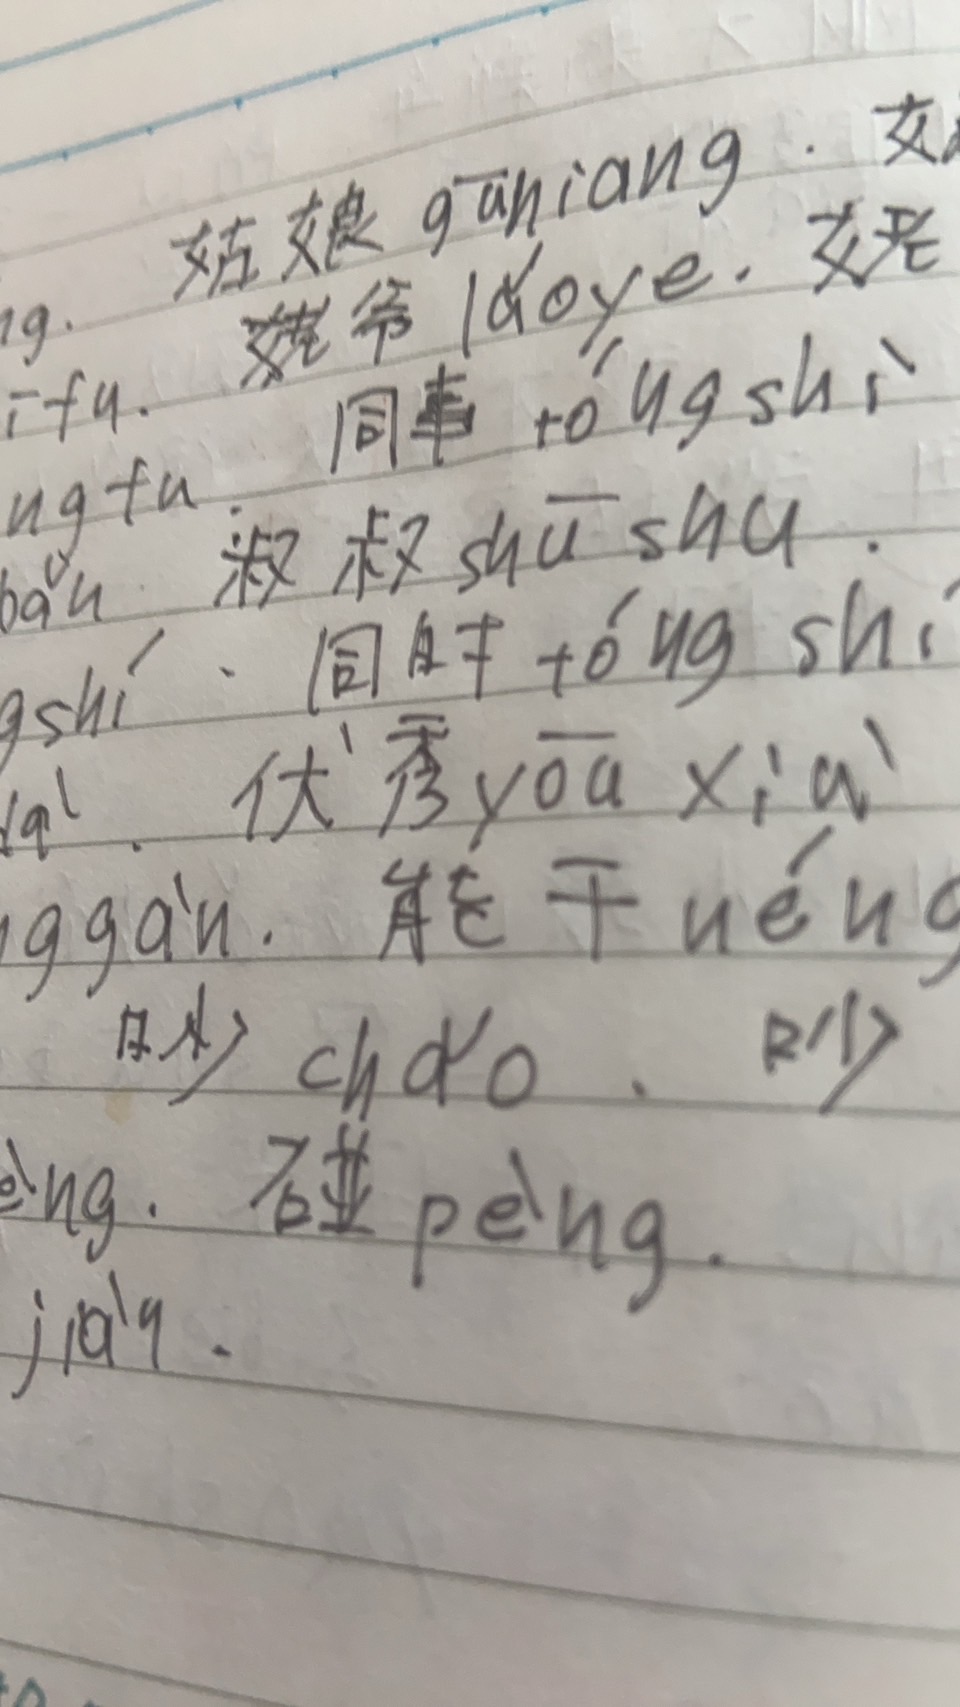 姑娘 gūniang. 女
ng. 姥爷 lǎoye. 姥
īfu. 同事 tóngshì
ngfu. 叔叔 shūshu.
bǎn 同时 tóngshí
gshí. 优秀 yōuxiù
nggàn. 能干 néng
吵 chǎo. 吵
èng. 碰 pèng.
jiàn.